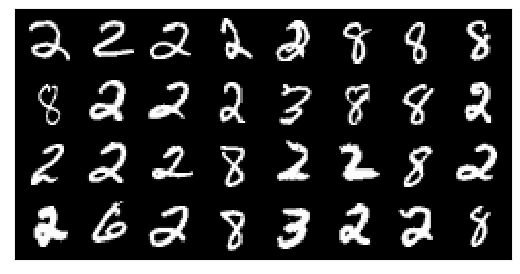 2 2 2 2 2 8 8 8
8 2 2 2 3 8 8 2
2 2 2 8 2 2 8 2
2 6 2 8 3 2 2 8